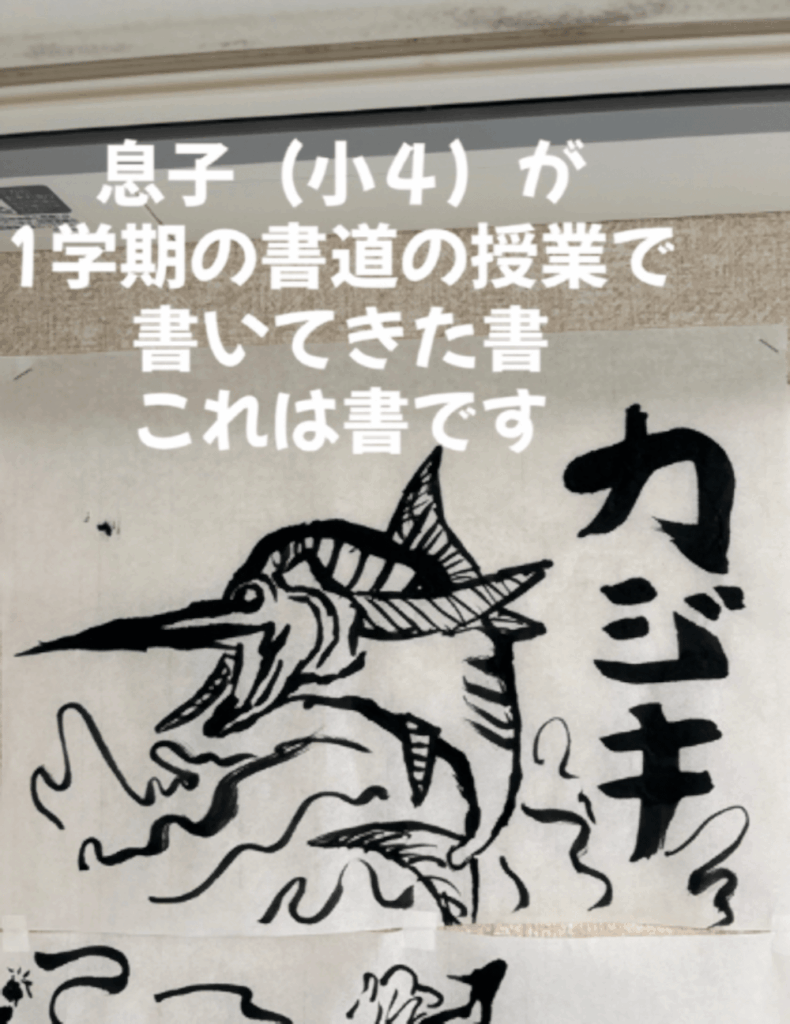 息子（小4）が
1学期の書道の授業で
書いてきた書
これは書です
カジキ